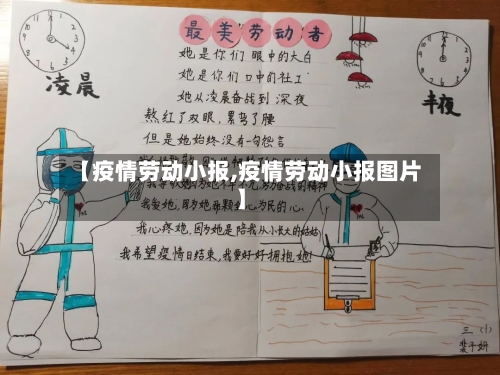 最美劳动者
她是你们眼中的大白
凌晨
她是你们口中的社工
半夜
她从凌晨奋战到深夜
熬红了双眼，累弯了腰
但是她始终没有一句怨言
【疫情劳动小报,疫情劳动小报图片
】
我爱她，因为她那颗全心为民的心
我心疼她，因为她是陪我从小长大的姑姑
我希望疫情日结束，我要好好拥抱她！
三（1）